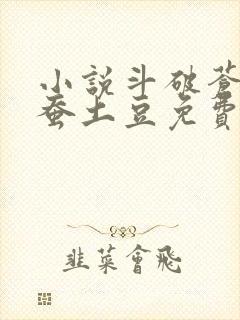 小說斗破蒼
蚕土豆免費
韭菜會飛